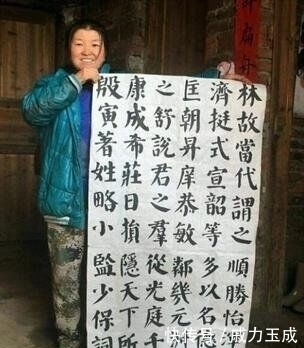 林故當代謂之順勝怡
濟挺式宣韶等多以名
匡朝昇庠恭敏鄰幾元
之舒說君之羣從光庭千
康成希莊日損隱天下所
殷寅著姓略小監少保詞
快传号/威力玉成